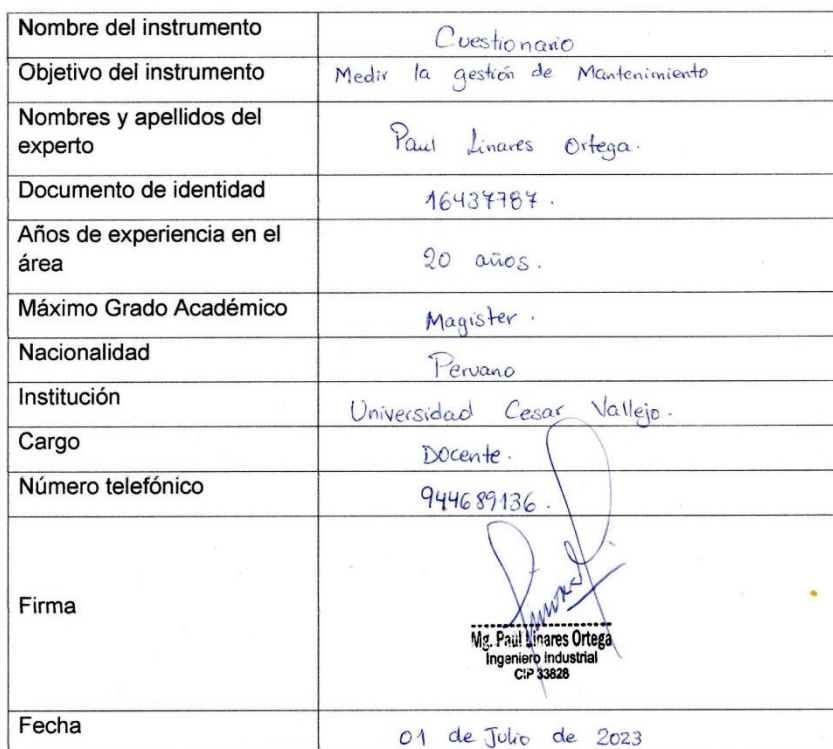 Nombre del instrumento
Cuestionario
Objetivo del instrumento
Medir la gestión de Mantenimiento
Nombres y apellidos del
experto
Paul Linares Ortega.
Documento de identidad
16437787.
Años de experiencia en el
área
20 años.
Máximo Grado Académico
Magister.
Nacionalidad
Peruano
Institución
Universidad Cesar Vallejo.
Cargo
Docente.
Número telefónico
944689136.
Firma
Mg. Paul Linares Ortega
Ingeniero Industrial
CIP 33828
Fecha
01 de Julio de 2023